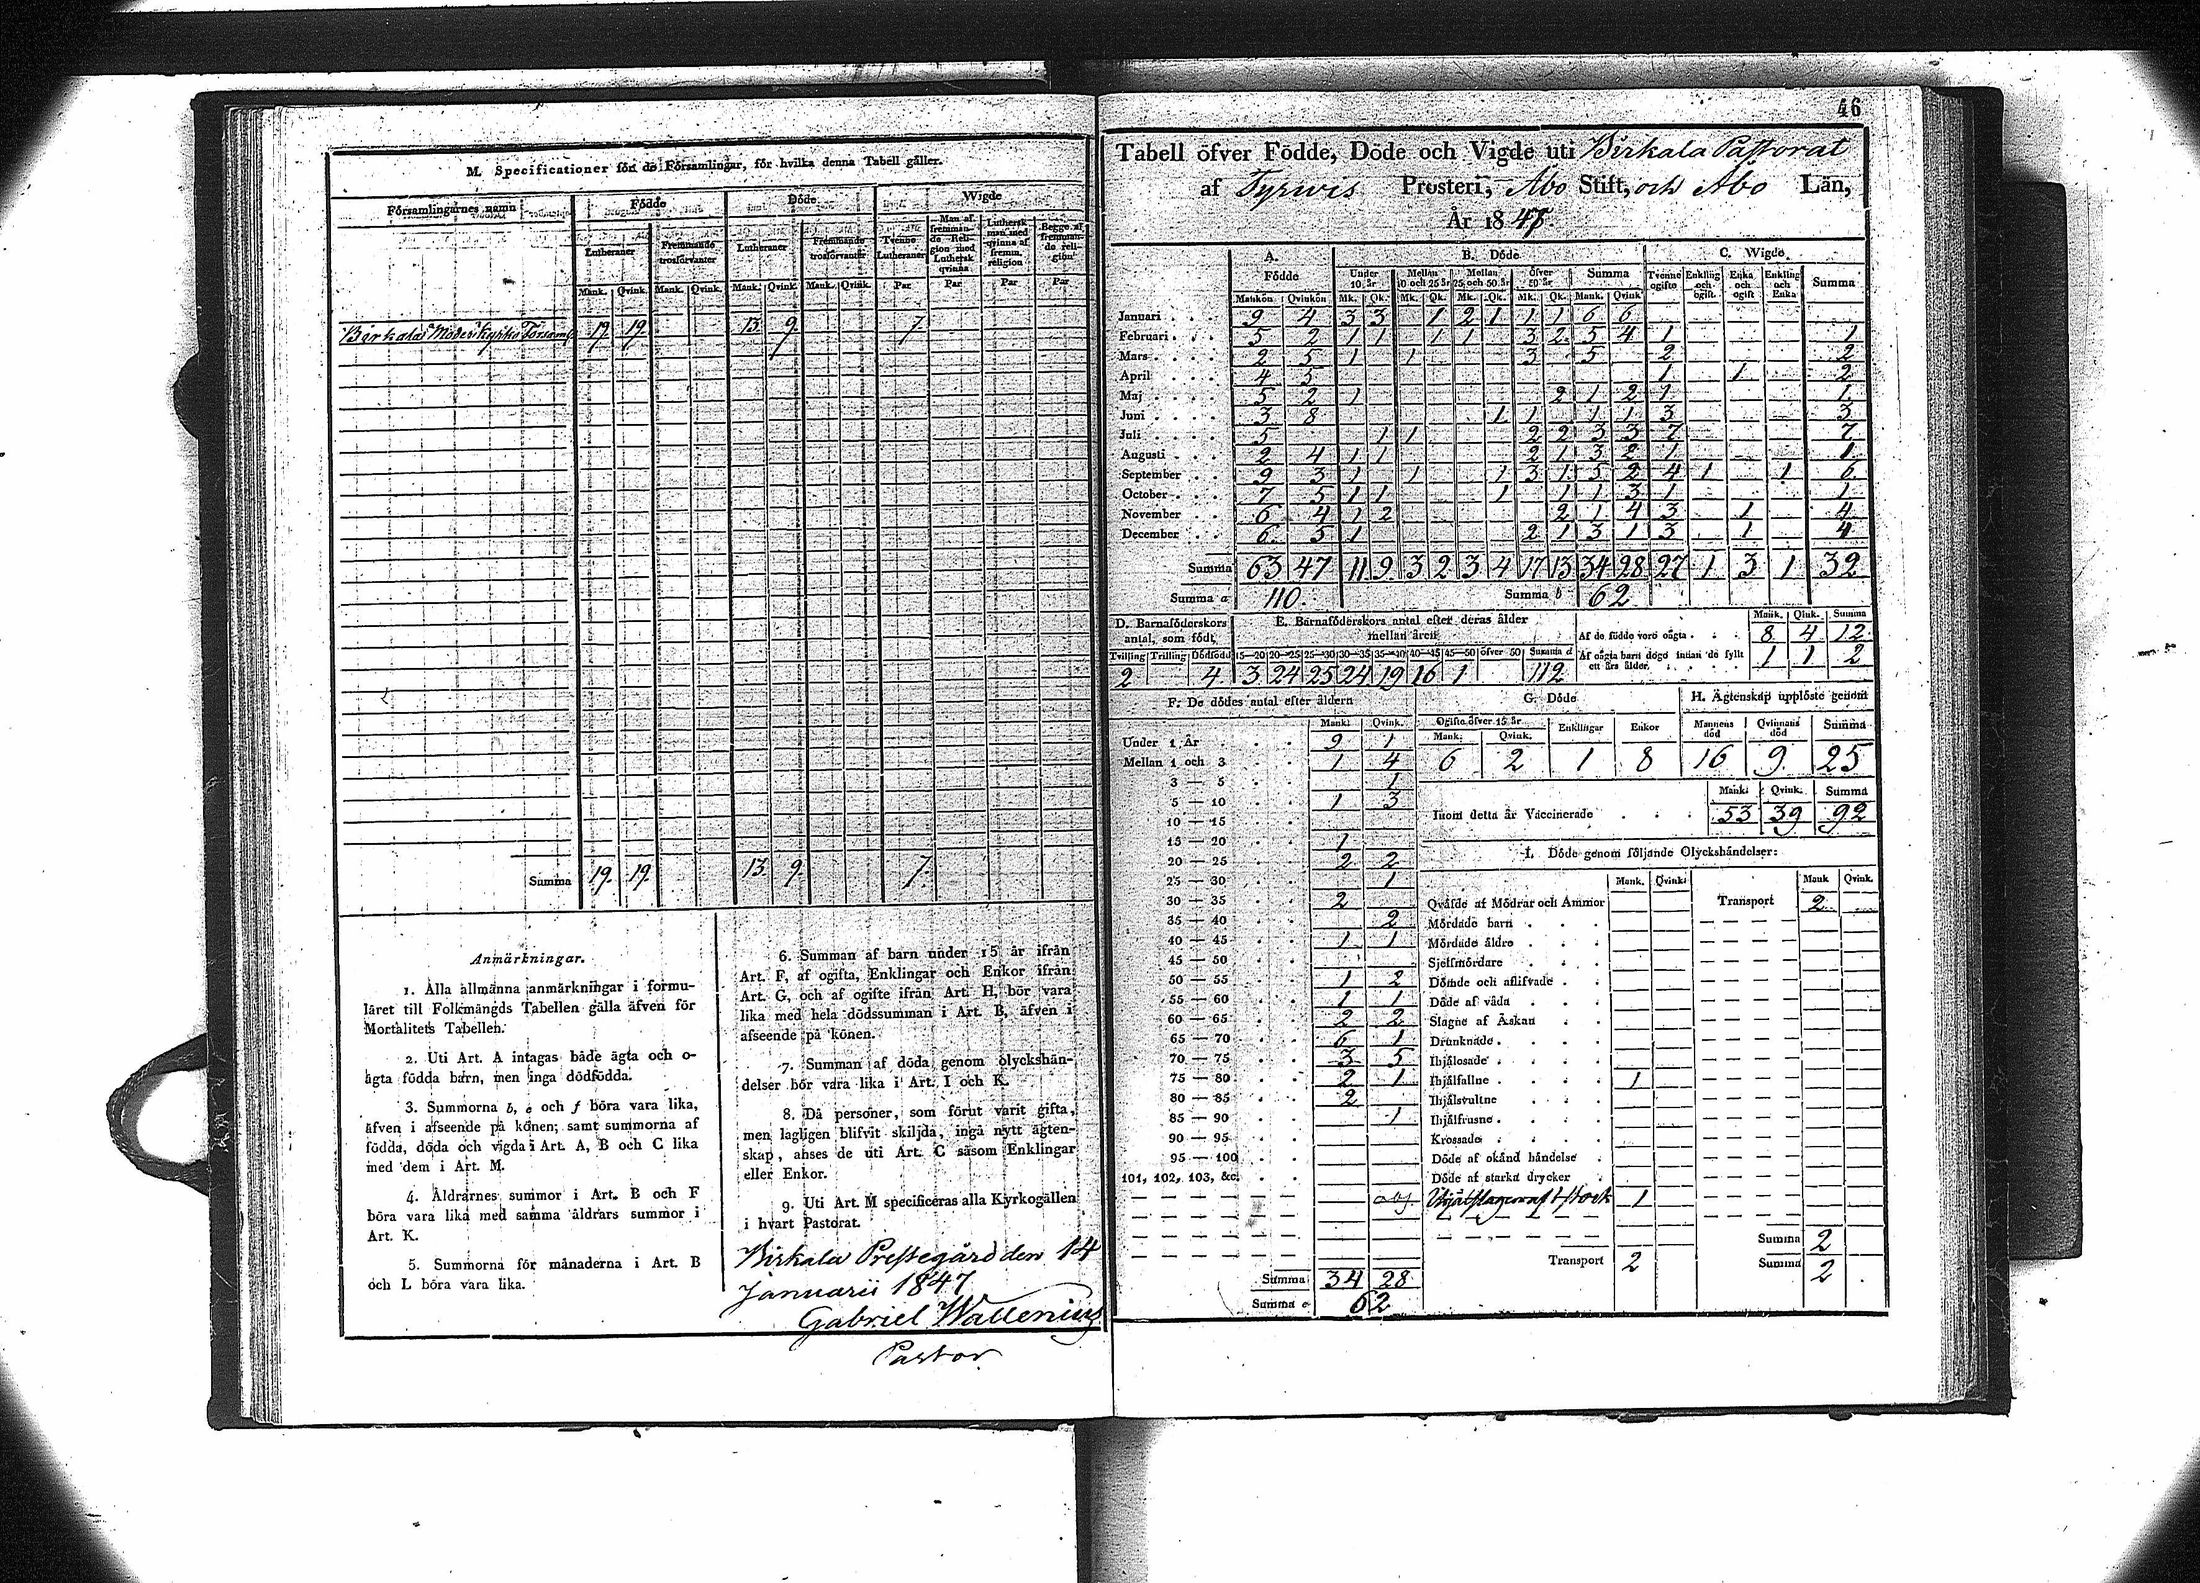 M. Specificationer för de Församlingar, för hvilka denna Tabell gäller.
Församlingarnes namn Födde Döde Wigde
Lutheraner Fremmande trosförvanter Lutheraner Fremmande trosförvanter Tvenne Lutheraner Man af fremmande Religion med Luthersk qvinna Luthersk man med qvinna af fremm. religion Begge af fremmande religion
Mank. Qvink. Mank. Qvink. Mank. Qvink. Mank. Qvink. Par Par Par Par
Birkala Moderkyrko Församl 19. 19. 13. 9. 7.
Summa 19. 19. 13. 9. 7.
Anmärkningar.
1. Alla allmänna anmärkningar i formu-
läret till Folkmängds Tabellen gälla äfven för
Mortalitets Tabellen.
2. Uti Art. A intagas både ägta och o-
ägta födda barn, men inga dödfödda.
3. Summorna b, e och f böra vara lika,
äfven i afseende på könen; samt summorna af
födda, döda och vigda i Art. A, B och C lika
med dem i Art. M.
4. Åldrarnes summor i Art. B och F
böra vara lika med samma åldrars summor i
Art. K.
5. Summorna för månaderna i Art. B
och L böra vara lika.
6. Summan af barn under 15 år ifrån
Art. F, af ogifta, Enklingar och Enkor ifrån
Art. G, och af ogifte ifrån Art. H, bör vara
lika med hela dödssumman i Art. B, äfven i
afseende på könen.
7. Summan af döda genom olyckshän-
delser bör vara lika i Art. I och K.
8. Då personer, som förut varit gifta,
men lagligen blifvit skiljda, ingå nytt ägten-
skap, anses de uti Art. C såsom Enklingar
eller Enkor.
9. Uti Art. M specificeras alla Kyrkogällen
i hvart Pastorat.
Birkala Prestegård den 14
Januarii 1847
Gabriel Wallenius
Pastor
46
Tabell öfver Födde, Döde och Vigde uti Birkala Pastorat
af Tyrwis Prosteri, Åbo Stift, och Åbo Län,
År 18
A. Födde B. Döde C. Wigde
Under 10 år Mellan 10 och 25 år Mellan 25 och 50 år öfver 50 år Summa Tvenne ogifte Enkling och ogift Enka och ogift Enkling och Enka Summa
Mankön Qvinkön Mk. Qk. Mk. Qk. Mk. Qk. Mk. Qk. Mank. Qvink
Januari 9 4 3 3 1 2 1 1 1 6 6
Februari 5 2 1 1 1 1 3 2 5 4 1 1
Mars 2 5 1 1 3 5 2 2
April 4 5 1 1 2
Maj 5 2 1 2 1 2 1 1
Juni 3 8 1 1 1 1 3 3
Juli 5 1 1 2 2 3 3 7 7
Augusti 2 4 1 1 2 1 3 2 1 1
September 9 3 1 1 1 3 1 5 2 4 1 1 6
October 7 5 1 1 1 1 1 3 1 1
November 6 4 1 2 2 1 4 3 1 4
December 6 5 1 2 1 3 1 3 1 4
Summa 63 47 11 9 3 2 3 4 17 13 34 28 27 1 3 1 32
Summa a 110. Summa b 62
D. Barnaföderskors antal, som födt, E. Barnaföderskors antal efter deras ålder mellan åren Mank. Qink. Summa
Af de födde voro oägta 8 4 12
Tvilling Trilling Dödfödd 15—20 20—25 25—30 30—35 35—40 40—45 45—50 öfver 50 Summa d Af oägta barn dogo innan de fyllt ett års ålder 1 1 2
2 4 3 24 25 24 19 16 1 112
F. De dödes antal efter åldern G. Döde H. Ägtenskap upplöste genom
Mank. Qvink. Ogifte öfver 15 år Enklingar Enkor Mannens död Qvinnans död Summa
Mank. Qvink.
6 2 1 8 16 9 25
Under 1 År 9 1
Mellan 1 och 3 1 4
3 — 5 1
5 — 10 1 3
10 — 15
15 — 20 1
20 — 25 2 2
25 — 30 1
30 — 35 2
35 — 40 2
40 — 45 1 1
45 — 50
50 — 55 1 2
55 — 60 1 1
60 — 65 2 2
65 — 70 6 1
70 — 75 3 5
75 — 80 2 1
80 — 85 2
85 — 90 1
90 — 95
95 — 100
101, 102, 103, &c.
Summa 34 28
Summa e 62
Mank. Qvink. Summa
Inom detta år Vaccinerade 53 39 92
I. Döde genom följande Olyckshändelser:
Mank. Qvink. Mank Qvink.
Qväfde af Mödrar och Ammor Transport 2
Mördade barn
Mördade äldre
Sjelfmördare
Dömde och aflifvade
Döde af våda
Slagne af Åskan
Drunknade
Ihjälosade
Ihjälfallne 1
Ihjälsvultne
Ihjälfrusne
Krossade
Döde af okänd händelse
Döde af starka drycker
Ihjälslagen af Stock 1
Transport 2
Summa 2
Summa 2